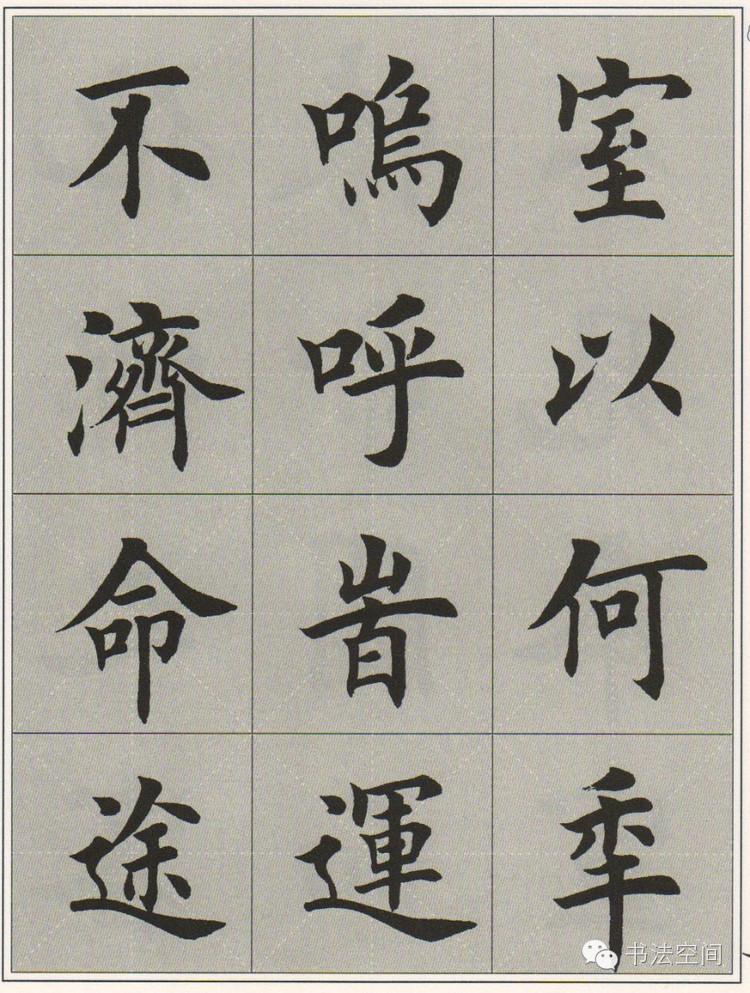 室以何秊
嗚呼旹運
不濟命途
书法空间